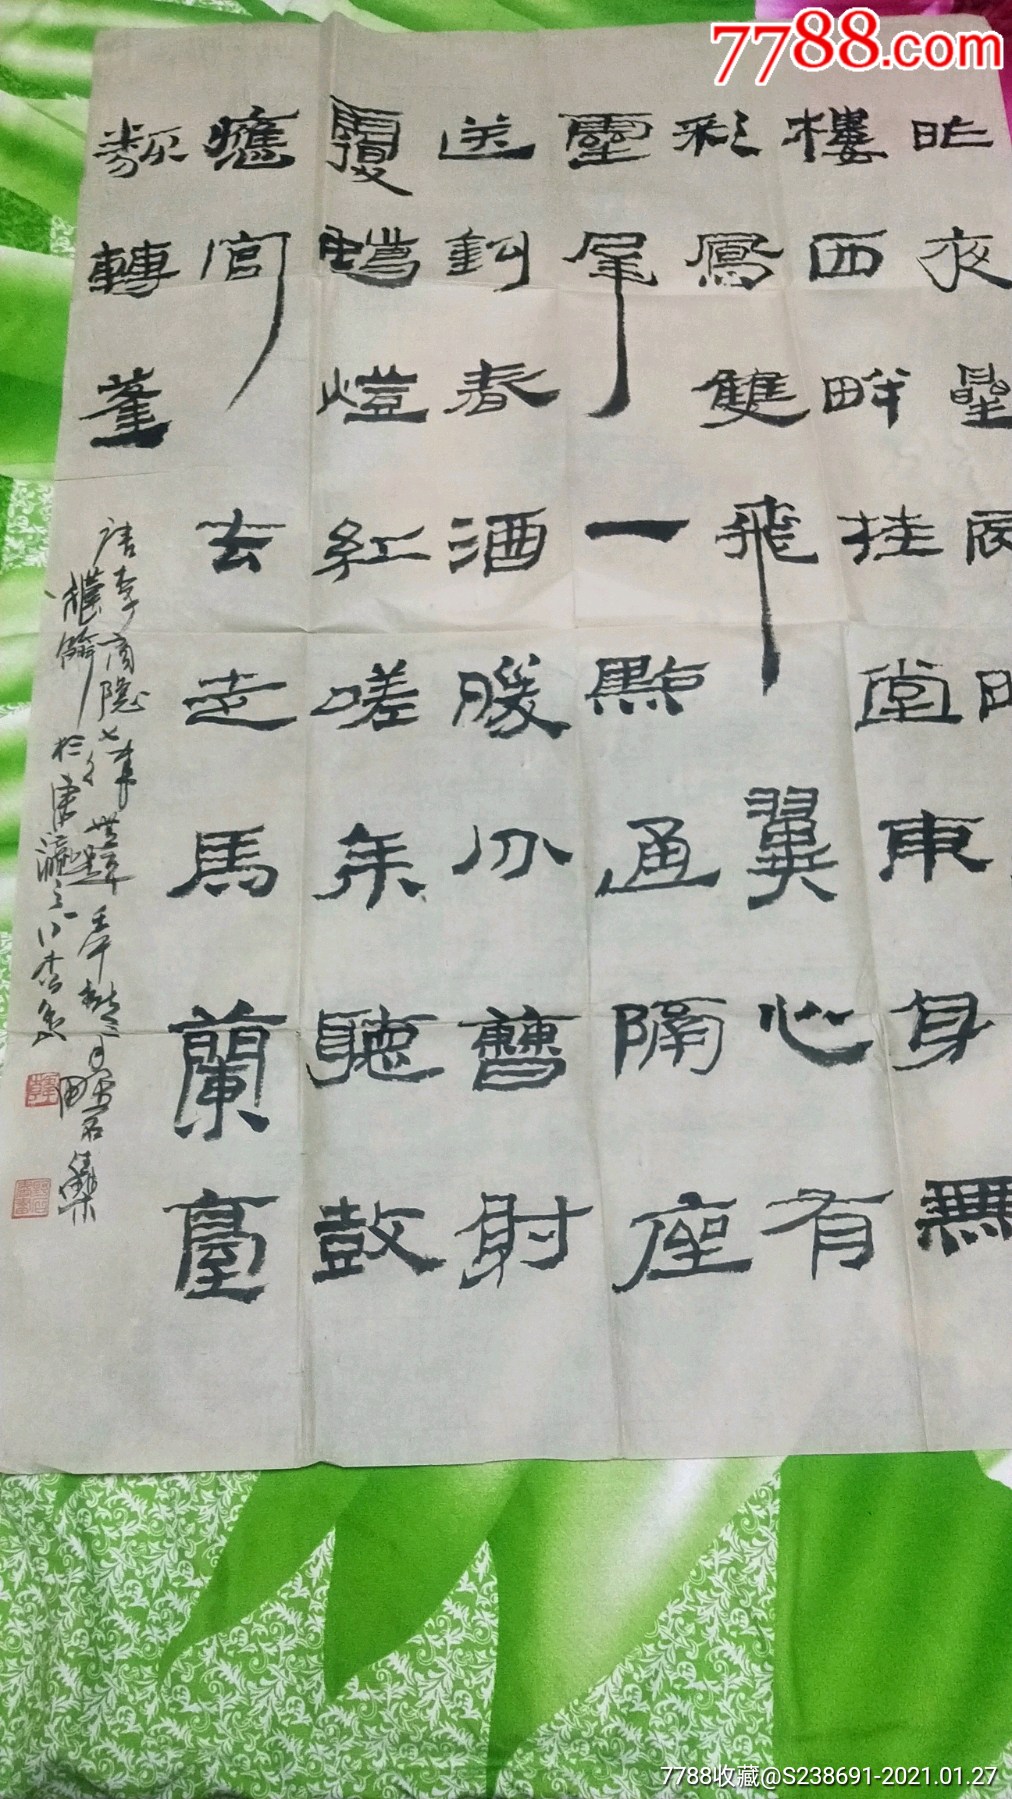 7788.com
昨夜曐辰昨
樓西畔桂堂東身無
彩鳳雙飛翼心有
靈犀一點通隔座
送鉤春酒暖分曹射
覆蠟燈紅嗟余聽鼓
應官去走馬蘭臺
類轉蓬
唐李商隐七律無題壬午
於津
7788收藏@S238691-2021.01.27